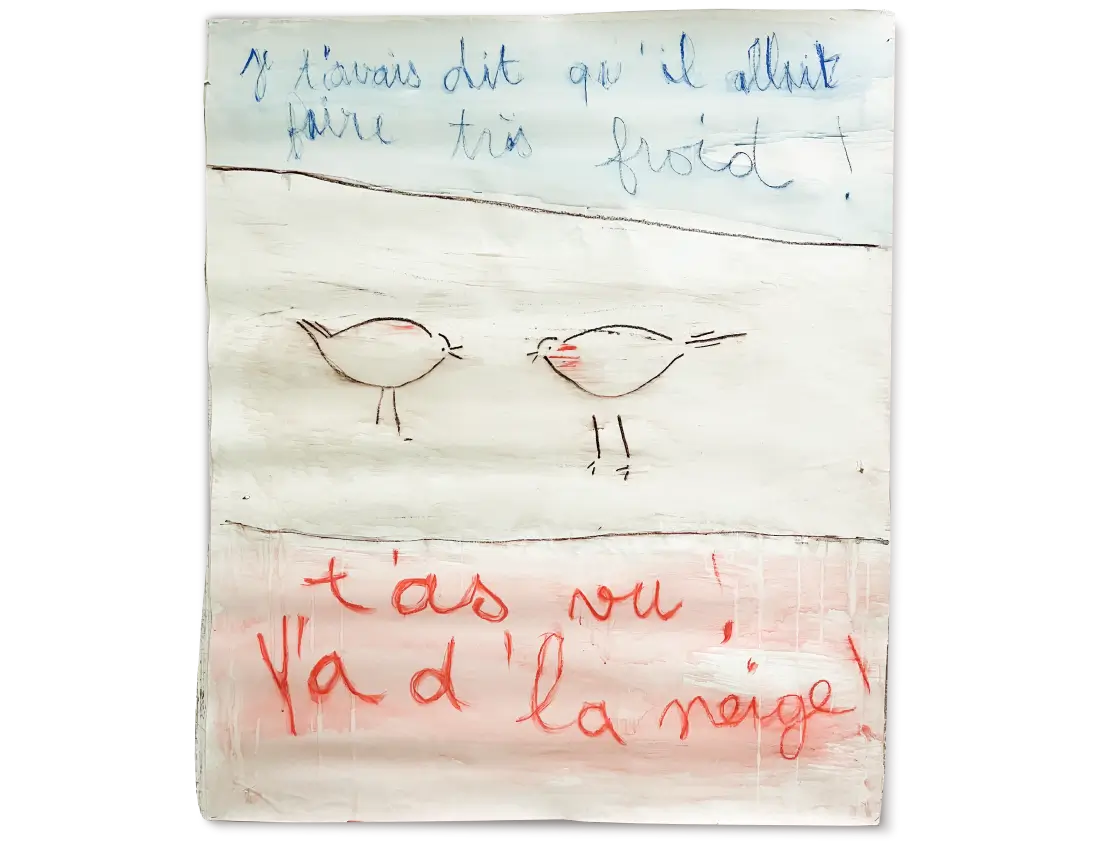 J t'avais dit qu'il allait
faire très froid !
t'as vu !
Y'a d'la neige !